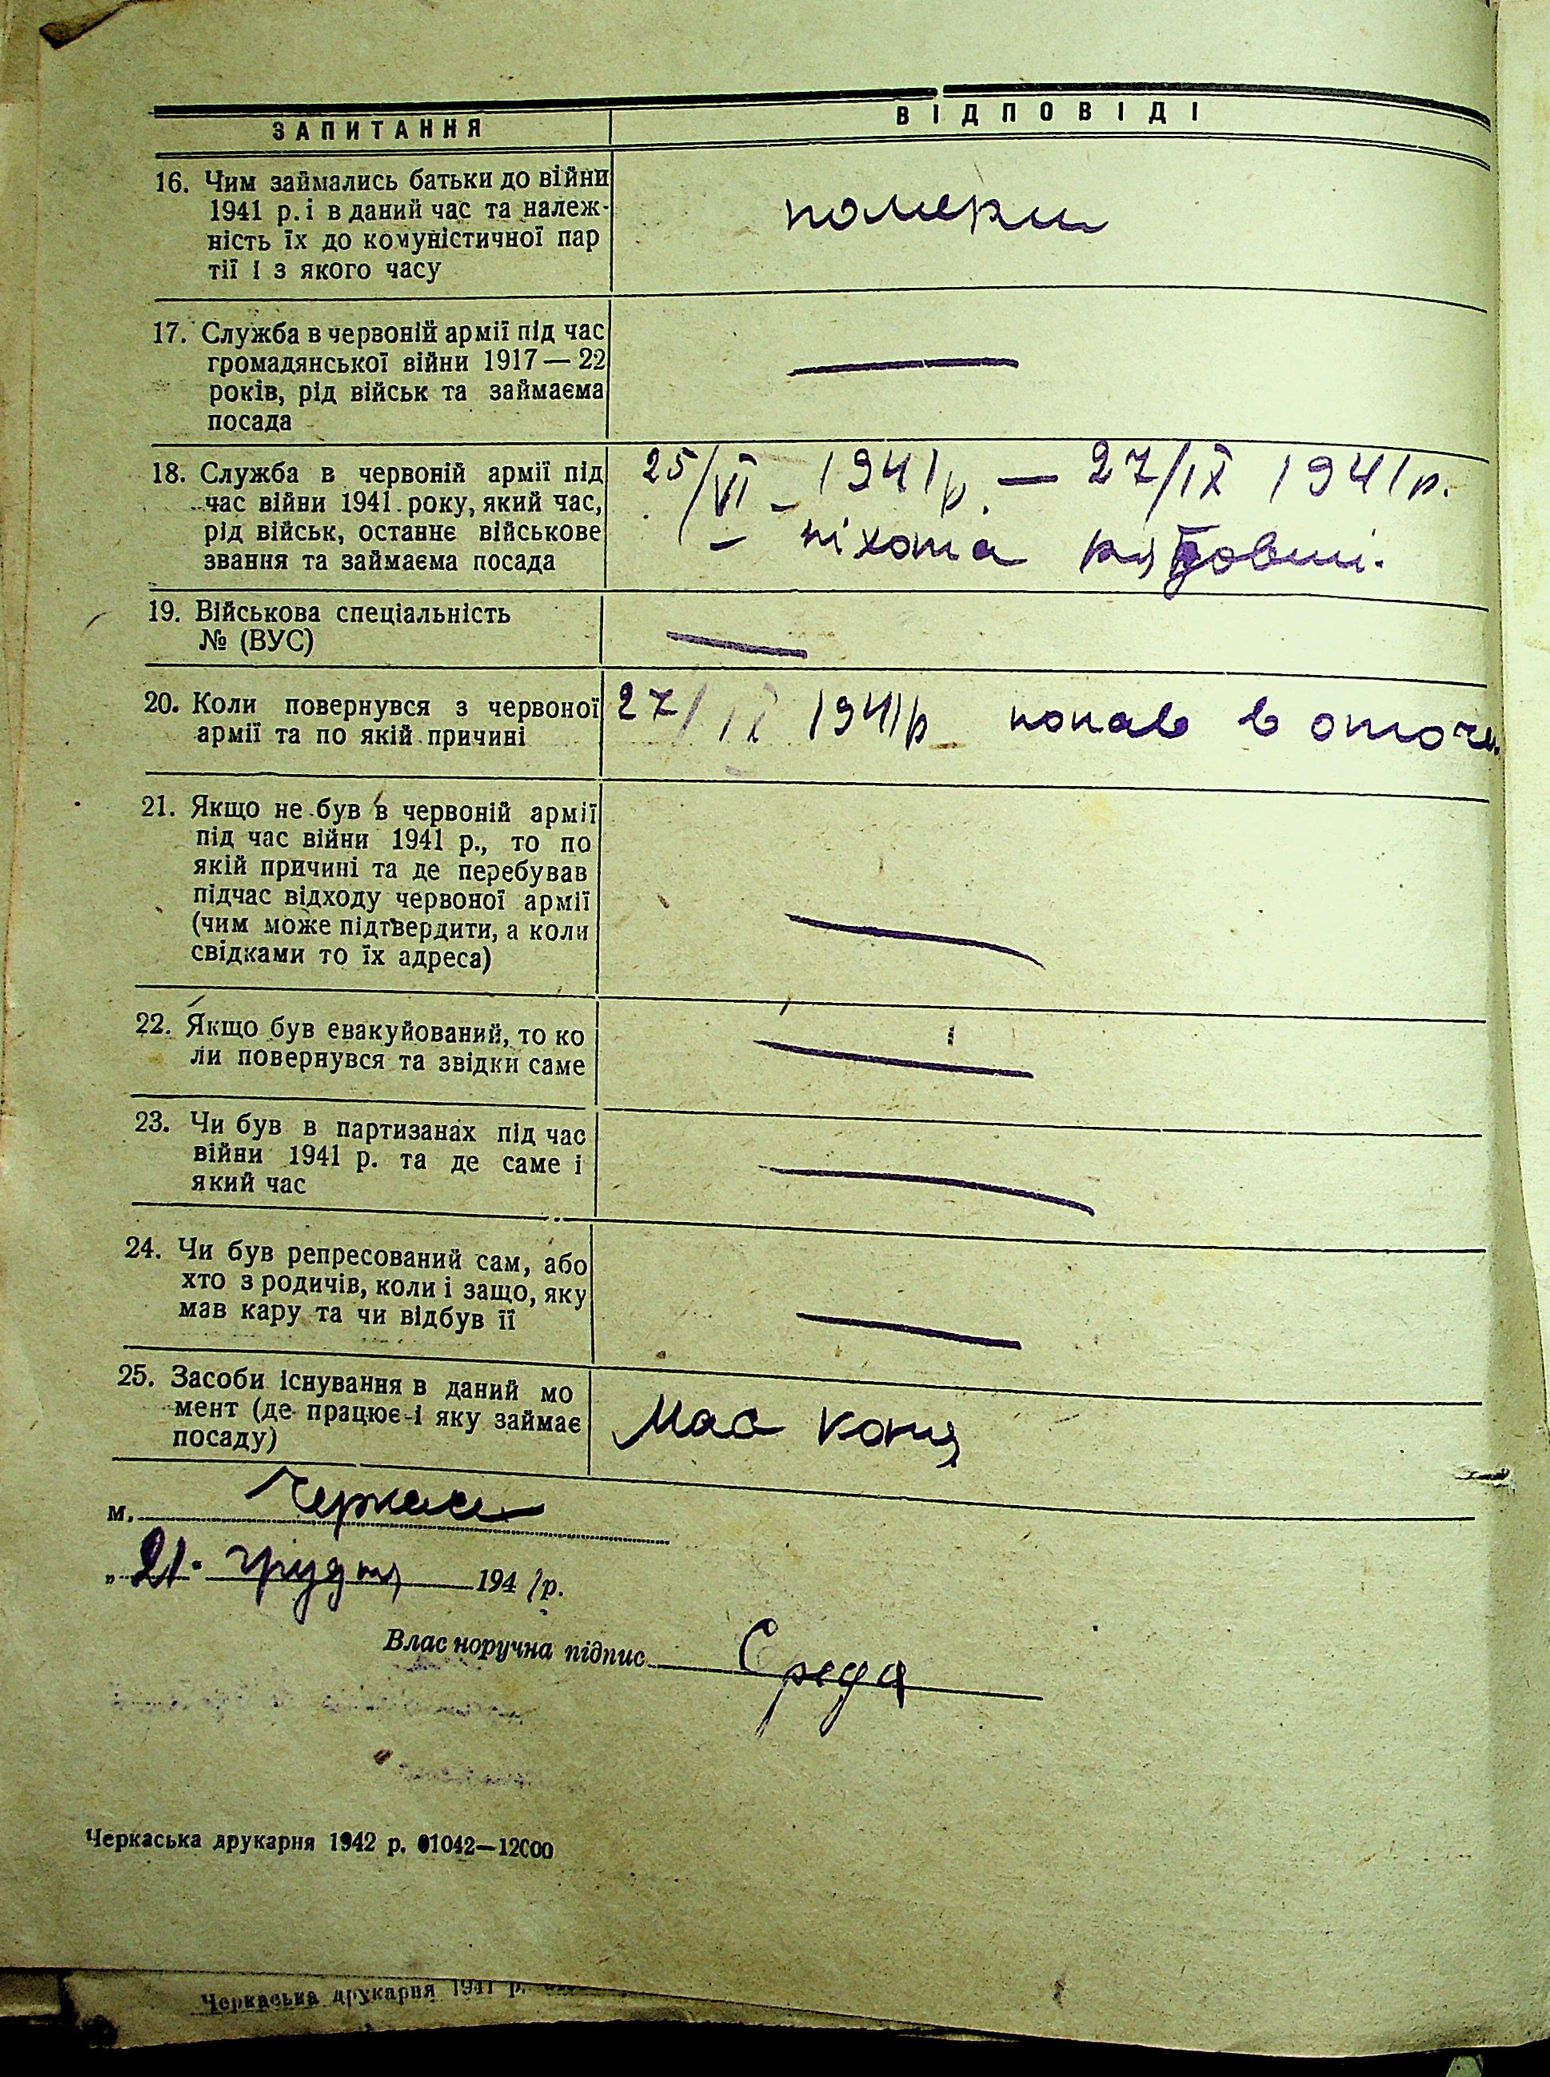 ЗАПИТАННЯ
ВІДПОВІДІ
16. Чим займались батьки до війни
1941 р. і в даний час та належ-
ність їх до комуністичної пар
тії і з якого часу
померли
17. Служба в червоній армії під час
громадянської війни 1917—22
років, рід військ та займаєма
посада
18. Служба в червоній армії під
час війни 1941 року, який час,
рід військ, останнє військове
звання та займаєма посада
25/VI - 1941р. — 27/IX 1941р.
– піхота рядовий.
19. Військова спеціальність
№ (ВУС)
20. Коли повернувся з червоної
армії та по якій причині
27/IX 1941р попав в оточ.
21. Якщо не був в червоній армії
під час війни 1941 р., то по
якій причині та де перебував
підчас відходу червоної армії
(чим може підтвердити, а коли
свідками то їх адреса)
22. Якщо був евакуйований, то ко
ли повернувся та звідки саме
23. Чи був в партизанах під час
війни 1941 р. та де саме і
який час
24. Чи був репресований сам, або
хто з родичів, коли і защо, яку
мав кару та чи відбув її
25. Засоби існування в даний мо
мент (де працює і яку займає
посаду)
Має коня
м. Черкаси
„ 21. грудня 1941р.
Власноручна підпис Середа
Черкаська друкарня 1942 р. 01042—12000
Черкаська друкарня 1941 р.